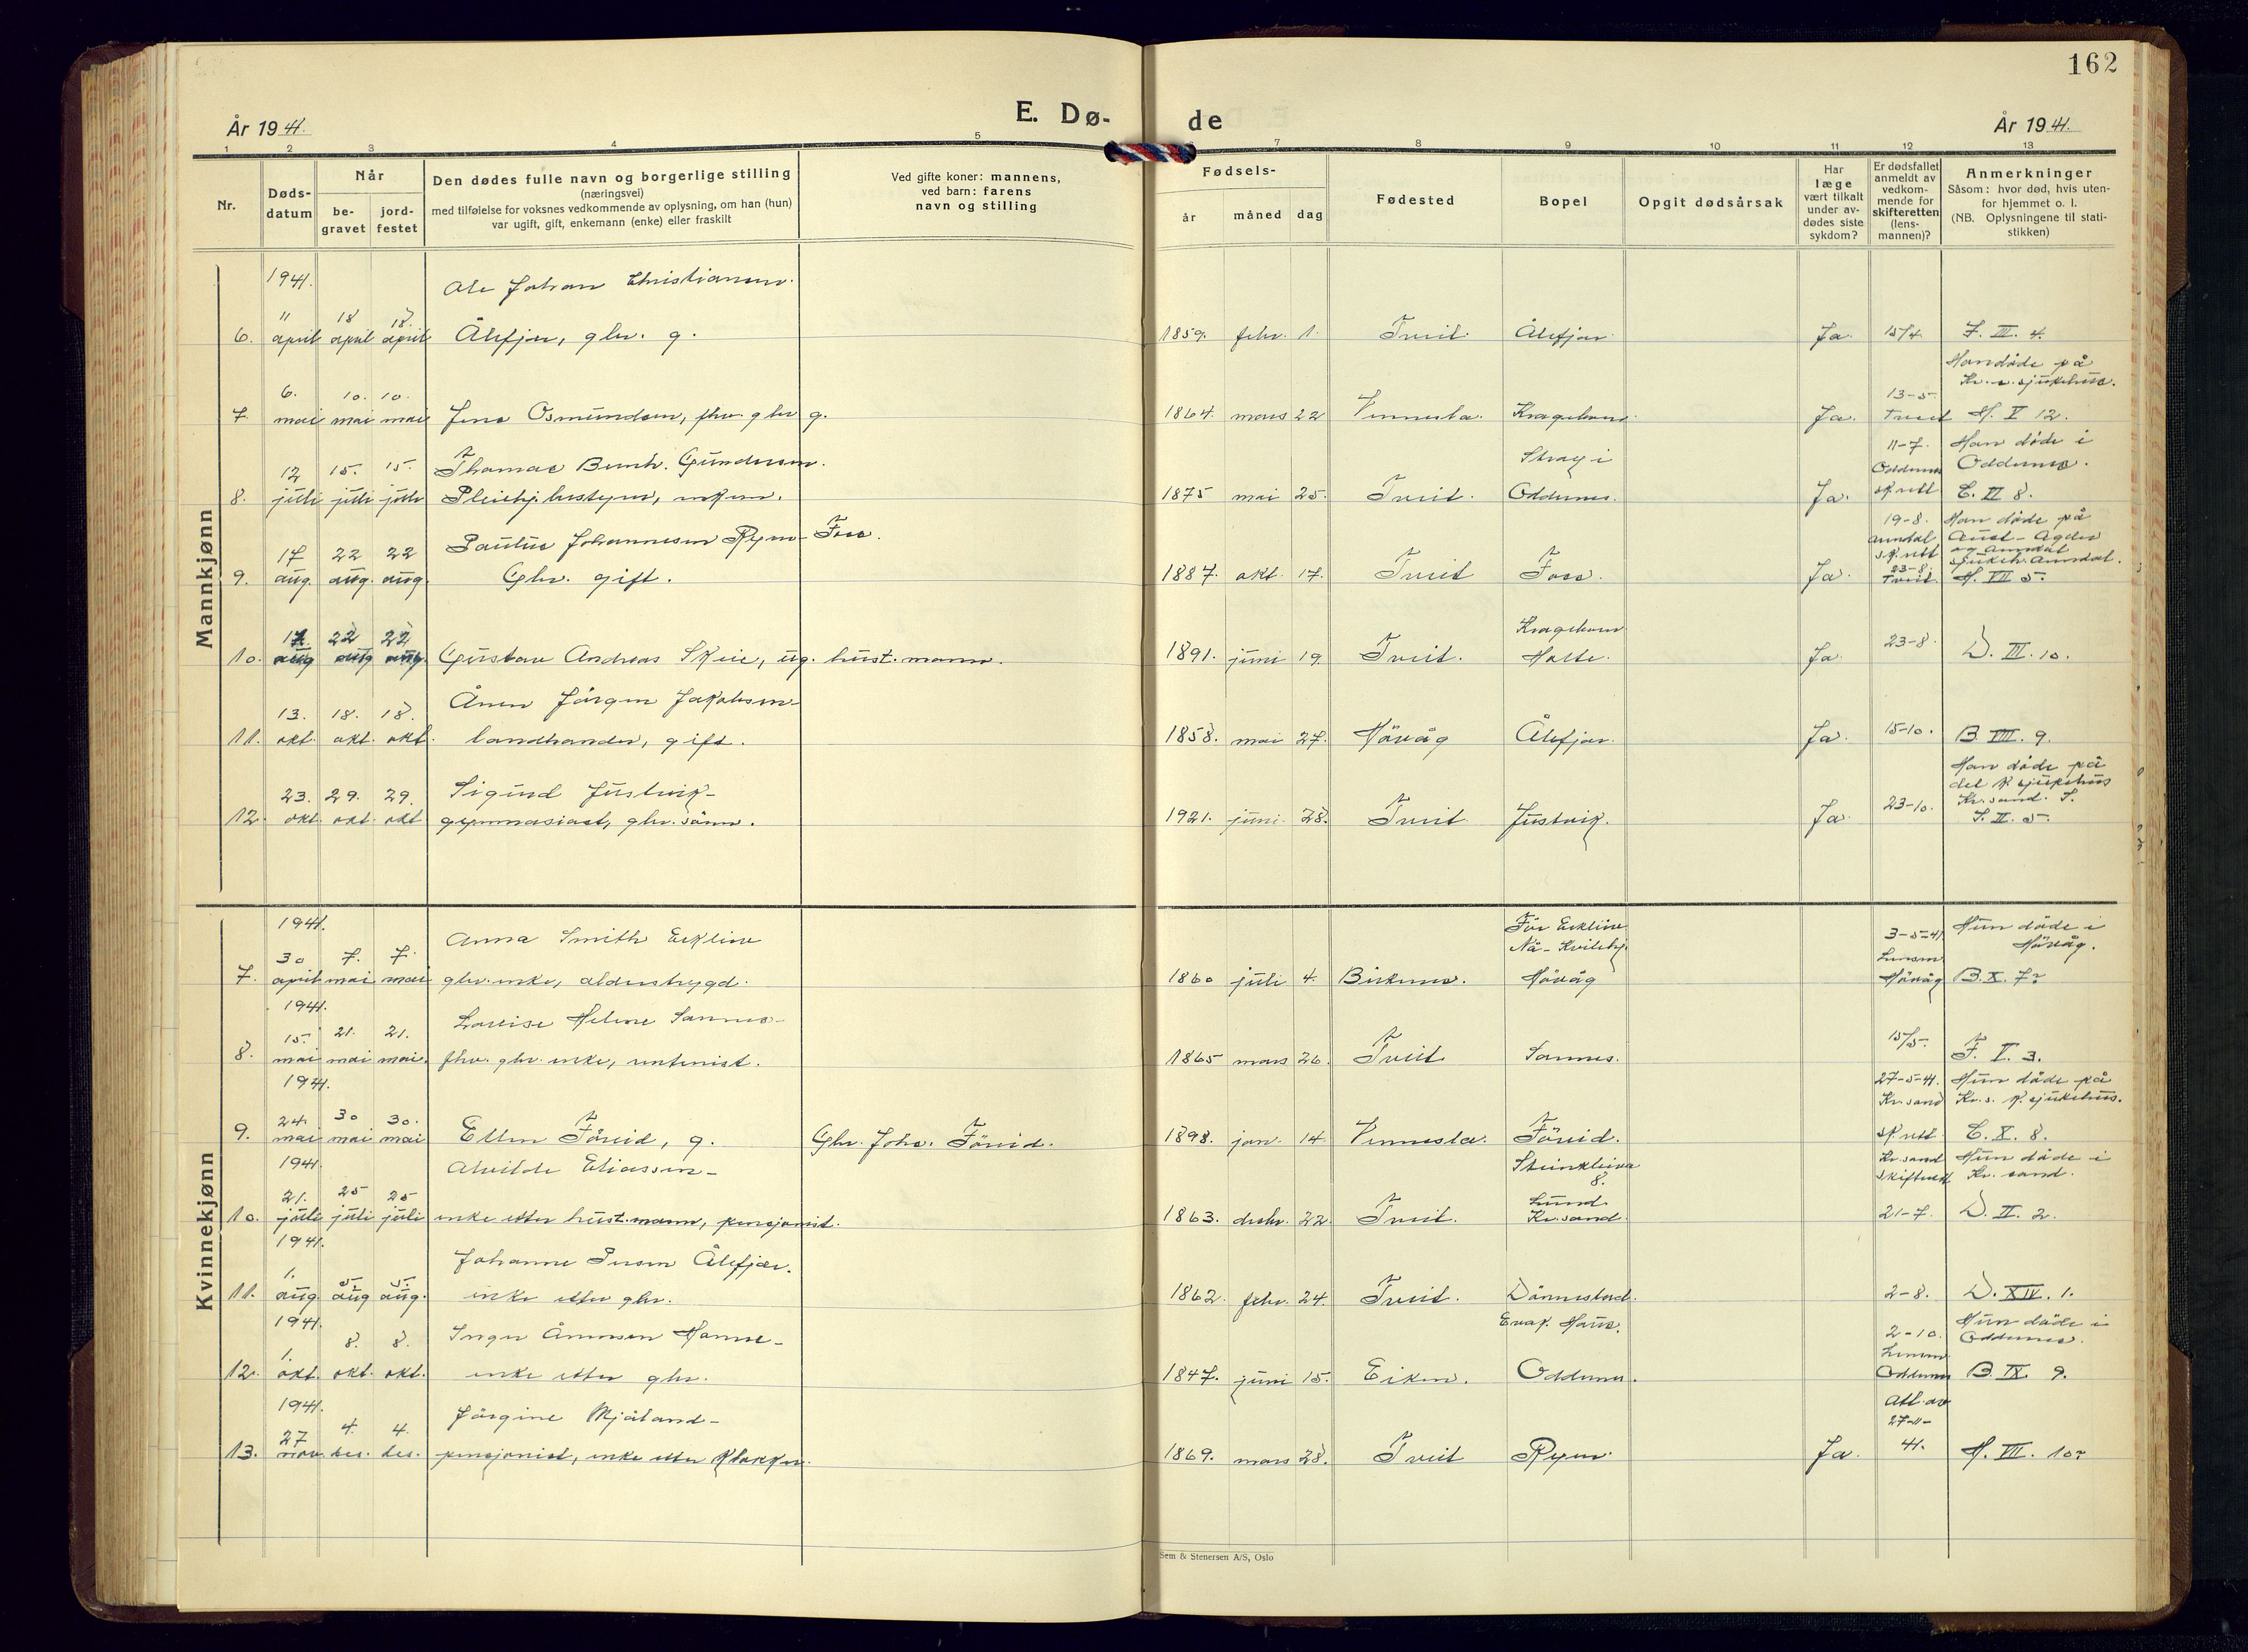 162
E. Dø-
de
År 1941.
År 1941.
1 2 3 4 5
7 8 9 10 11 12 13
Nr.
Døds-
datum
Når
be-
gravet
jord-
festet
Den dødes fulle navn og borgerlige stilling
(næringsvei)
med tilføielse for voksnes vedkommende av oplysning, om han (hun)
var ugift, gift, enkemann (enke) eller fraskilt
Ved gifte koner: mannens,
ved barn: farens
navn og stilling
Fødsels-
år måned dag
Fødested
Bopel
Opgit dødsårsak
Har
læge
vært tilkalt
under av-
dødes siste
sykdom?
Er dødsfallet
anmeldt av
vedkom-
mende for
skifteretten
(lens-
mannen)?
Anmerkninger
Såsom: hvor død, hvis uten-
for hjemmet o. l.
(NB. Oplysningene til stati-
stikken)
Mannkjønn
1941.
Ole Johan Christiansen.
11 18 18.
6. april april april Ålefjær, gbr. g. 1859. febr. 1. Tveit Ålefjær. Ja. 15/4. F. III. 4.
Han döde på
Kr. s. sjukehus.
6. 10. 10. 13-5-
7. mai mai mai Jens Osmundsen, fhv. gbr g. 1864. mars 22 Vennesla. Krageboen Ja. Tveit H. V 12.
12 15. 15. Thomas Bernh. Gundersen. Stray i 11-7. Oddernes Han döde i Oddernes.
8. juli juli juli Pleiehj.bestyrer, enkem. 1875 mai 25. Tveit. Oddernes. Ja. sk.rett E. II 8.
17 22 22 Paulus Johannesen Ryen- Foss. 19-8. Arendal sk.rett Han döde på Aust-Agder og Arendal sjukeh. Arendal.
9. aug. aug. aug. Gbr. gift. 1887. okt. 17. Tveit Foss. Ja. 23-8. Tveit H. VII 5.
17. 22 22 Krageboen
10. aug aug aug. Gustav Andreas Skeie, ug. hust.mann. 1891. juni 19. Tveit. Ja. 23-8. D. III. 10.
13. 18. 18. Ånen Jörgen Jakobsen-
11. okt. okt. okt. landhandler, gift. 1858. mai 27. Hövåg Ålefjær. Ja. 15-10. B. VIII. 9.
Han döde på
det k. sjukehus
23. 29. 29. Sigurd Justvik- Kr.sand. S.
12. okt. okt. okt gymnasiast, gbr. sönn. 1921. juni 28. Tveit Justvik. Ja. 23-10. S. II. 5.
Kvinnekjønn
1941. För Erkline
30 7. 7. Anna Smith Erkline Nå- Kvilehj. 3-5-41 Lensm. Hun döde i Hövåg.
7. april mai mai gbr.enke, alderstrygd. 1860 juli 4. Birkenes. Hövåg Hövåg B. X. 7?
1941.
15. 21. 21. Lovise Helene Sannes-
8. mai mai mai. fhv. gbr. enke, rentenist. 1865 mars 26. Tveit Sannes. 15/5. F. V. 3.
1941. 27-5-41. Hun döde på
24. 30 30. Kr.sand Kr.s. k. sjukehus.
9. mai mai mai Ellen Föreid, g. Gbr. Johs. Föreid. 1898. jan. 14. Vennesla. Föreid. sk.rett. E. X. 8.
1941. Steinkleiva 8.
21. 25 25 Alvilde Eliassen- Lund Kr.sand Skifterett Hun döde i Kr. sand.
10. juli juli juli enke etter hust.mann, pensjonist. 1863. desbr. 22 Tveit. Kr.sand. 21-7. D. II. 2.
1941.
1. 5 5. Johanne Ålefjær.
11. aug. aug aug. enke etter gbr. 1862. febr. 24. Tveit. Dönnestad. 2-8. D. XIV. 1.
1941. Evak. Haus. Hun döde i
1. 8. 8. Inger Hamre- 2-10. Lensm. Oddernes.
12. okt. okt. okt. enke etter gbr. 1847. juni 15. Eiken. Oddernes. Oddernes B. IX. 9.
1941. Att. av
27 4. 4. Jörgine Mjåland- 27-11-
13. nov. des. des. pensjonist, enke etter klokker. 1869. mars 28. Tveit Ryen Ja. 41. H. VII. 10?
Sem & Stenersen A/S, Oslo